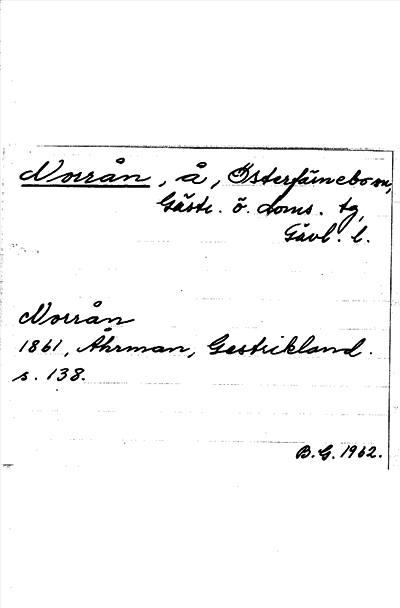 Norrån, å, Österfärnebo sn,
Gästr. ö. doms. tg,
Gävl. l.
Norrån
1861, Åhrman, Gestrikland.
s. 138.
B. G. 1962.